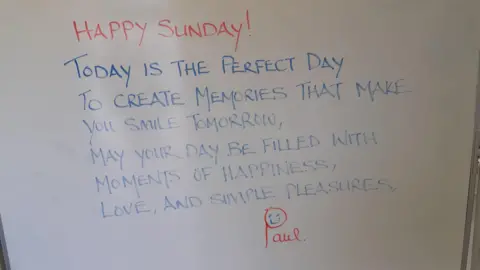 HAPPY SUNDAY!
TODAY IS THE PERFECT DAY
TO CREATE MEMORIES THAT MAKE
YOU SMILE TOMORROW,
MAY YOUR DAY BE FILLED WITH
MOMENTS OF HAPPINESS,
LOVE, AND SIMPLE PLEASURES.
Paul.